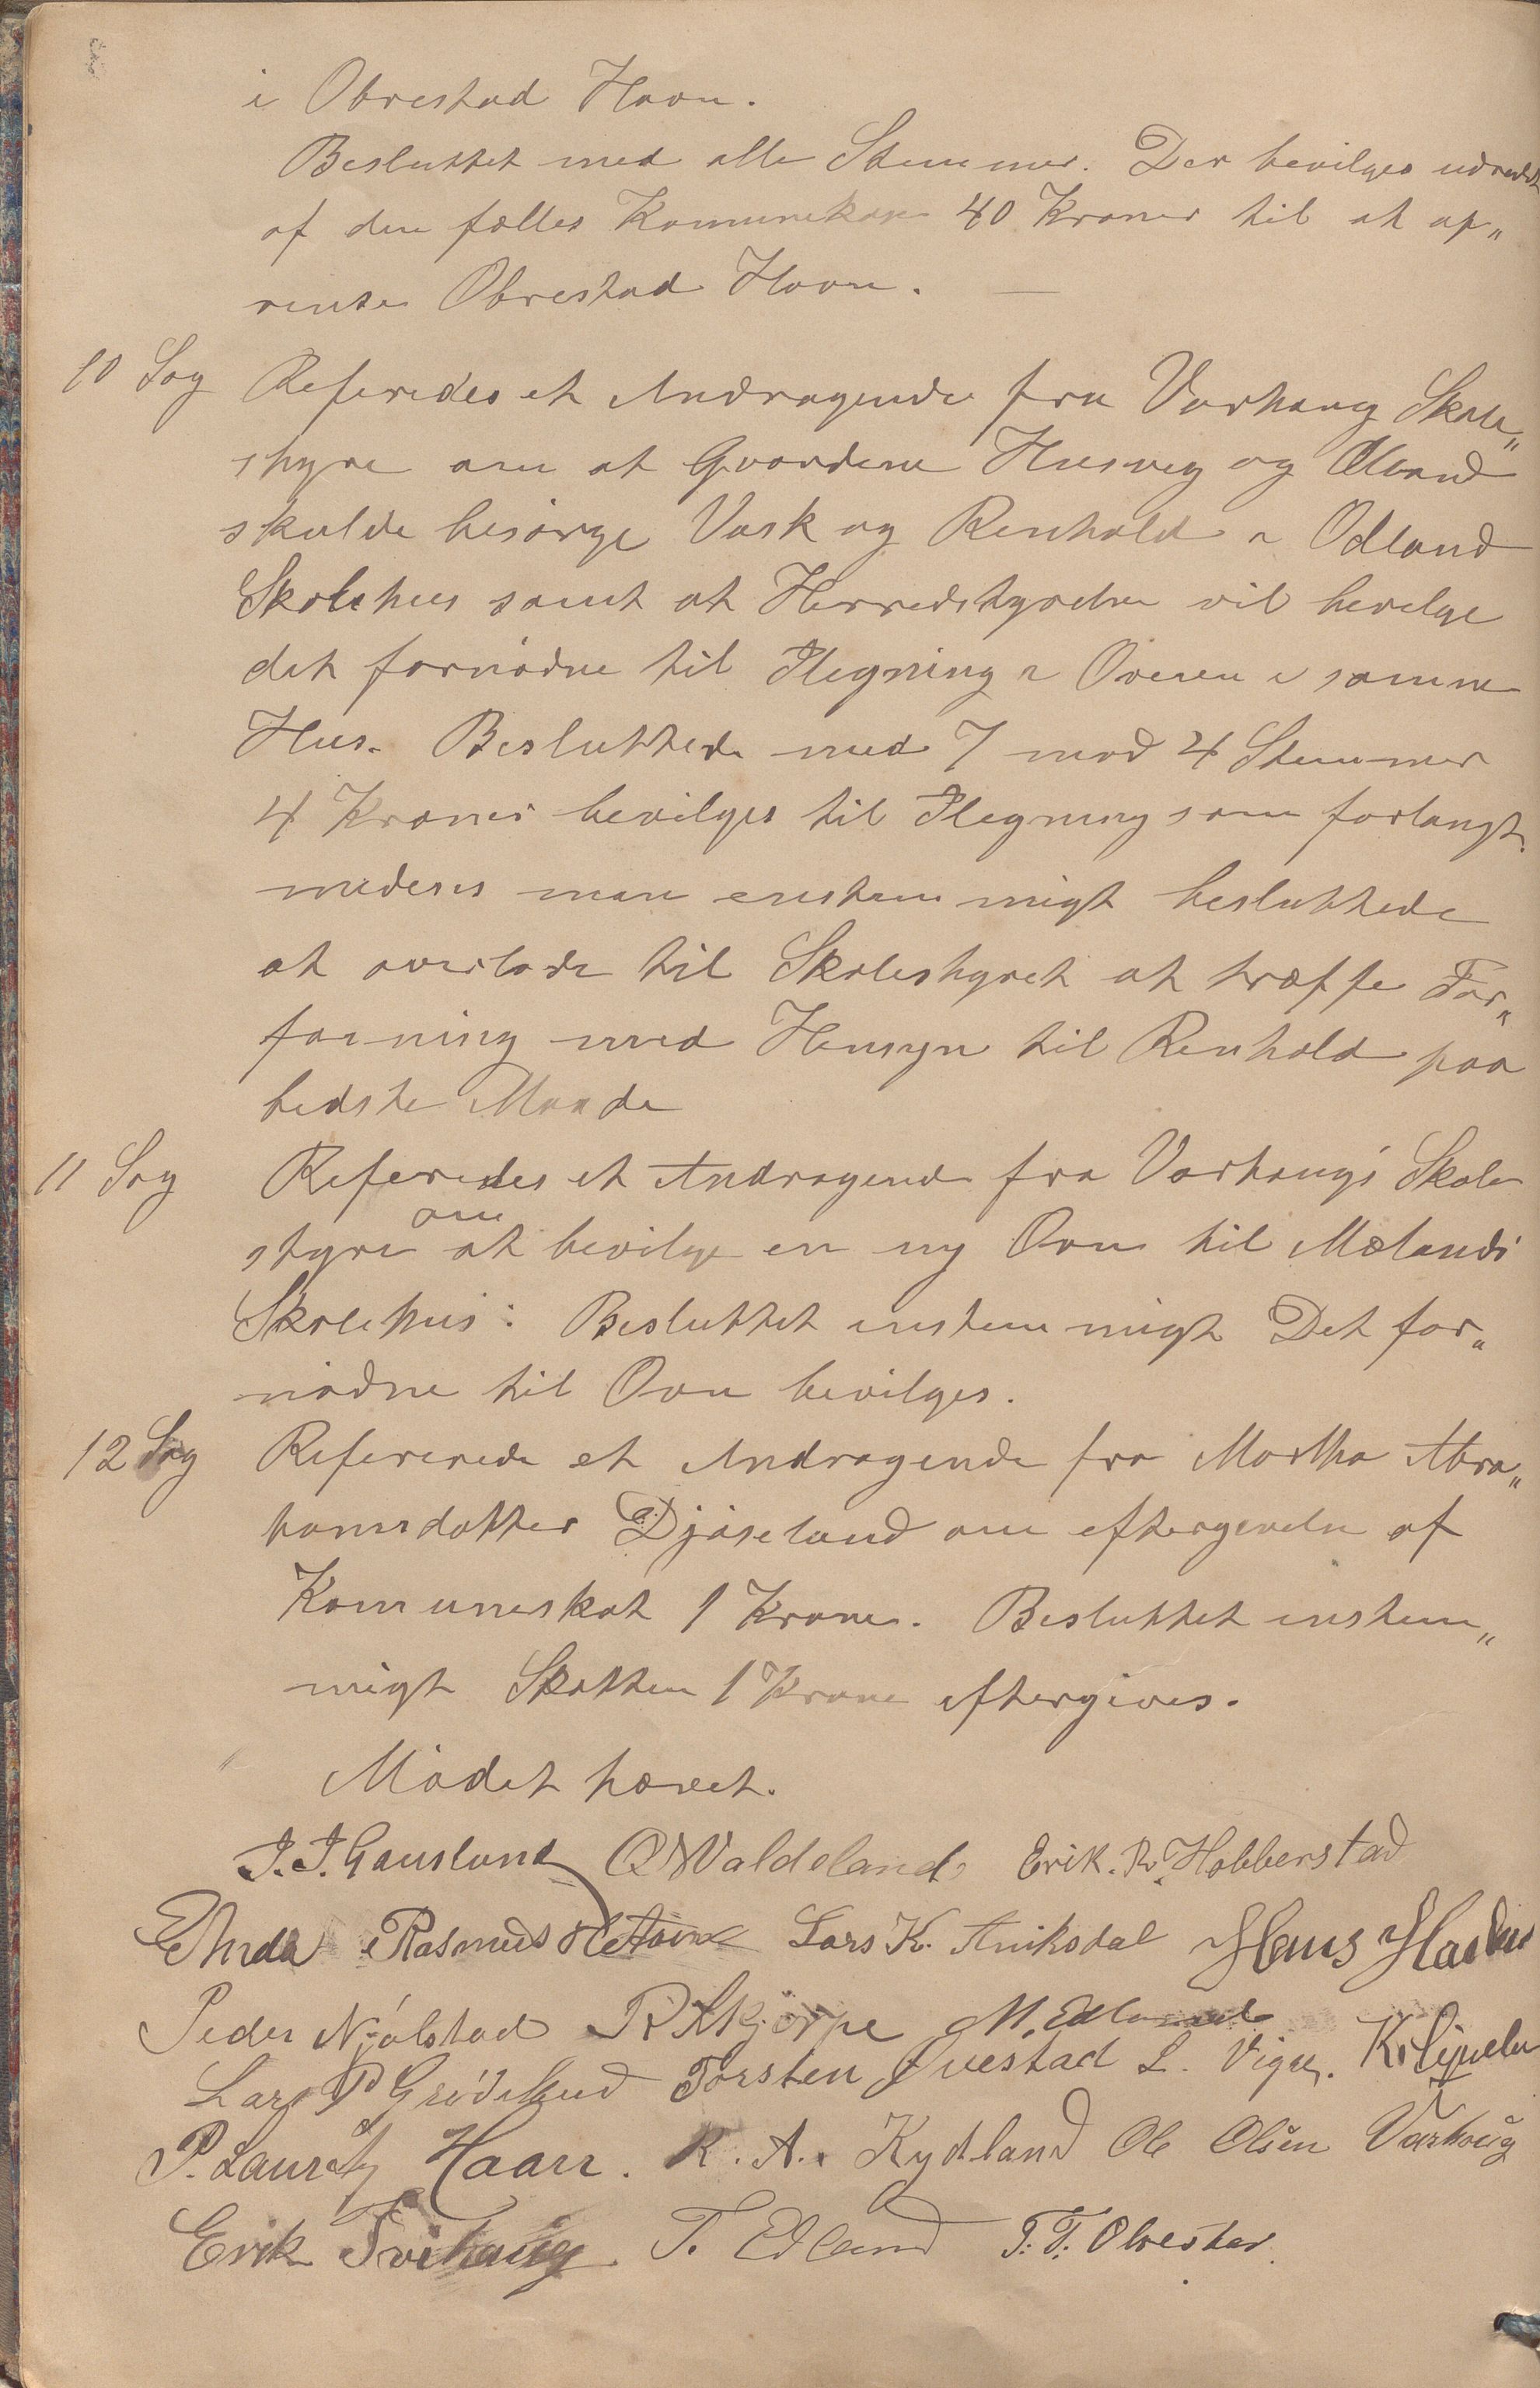 i Obrestad Havn.
Besluttet med alle Stemmer. Der bevilges udredet
af den fælles Komunekase 40 Kroner til at op„
rense Obrestad Havn. —
10 Sag Refereredes et Andragende fra Varhaug Skole„
styre om at Gaardene Husveg og Odland
skulde besørge Vask og Renhold i Odland
Skolehus samt at Herredstyrelsen vil bevilge
det fornødne til Ilegning i Ovenen i samme
Hus. Besluttede med 7 mod 4 Stemmer
4 Kroner bevilges til Ilegning som forlangt.
medens man enstemmigt besluttede
at overlade til Skolestyret at træffe For„
føining med Hensyn til Renhold paa
bedste Maade
11 Sag Referedes et Andragende fra Varhaugs Skole
styre om at bevilge en ny Ovn til Mælands
Skolehus: Besluttet enstemmigt Det for„
nødne til Ovn bevilges.
12 Sag Refererede et Andragende fra Martha Abra„
hamsdatter Djøseland om eftergivelse af
Komuneskat 1 Krone. Besluttet enstem„
migt Skatten 1 Krone eftergives.
Mødet hævet.
J. J. Gausland O W Valdeland Erik. R. Hobberstad
E Aada Rasmus Lars K. Aniksdal Hans
Peder Njølstad R Skjørpe M. Edland
Lars P Grødeland Torsten Qvestad L. Vigre.
P. Lauritz Haarr. K. A. Kydland Ole Olsen Varhoug
Erik Tvihaug T. Edland T. T. Obrestad.